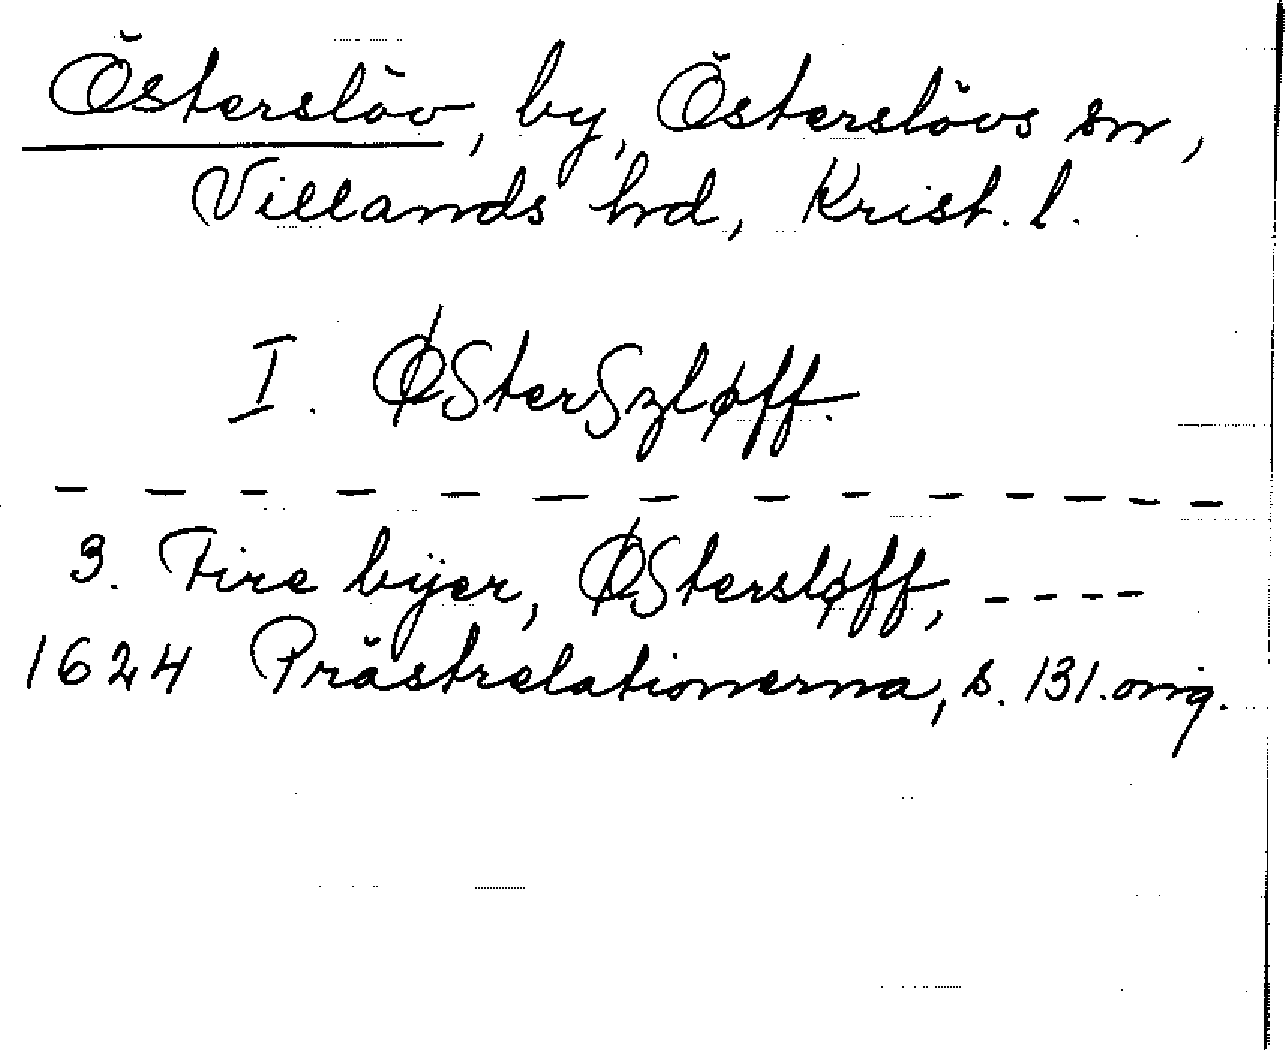 Österslöv, by, Österslövs sn,
Villands hd, Krist. l.
I. ØSterSzløff.
— — — — — — — — — — — — — —
3. Fire byer, ØStersløff, - - - -
1624 Prästrelationerna, s. 131. orig.